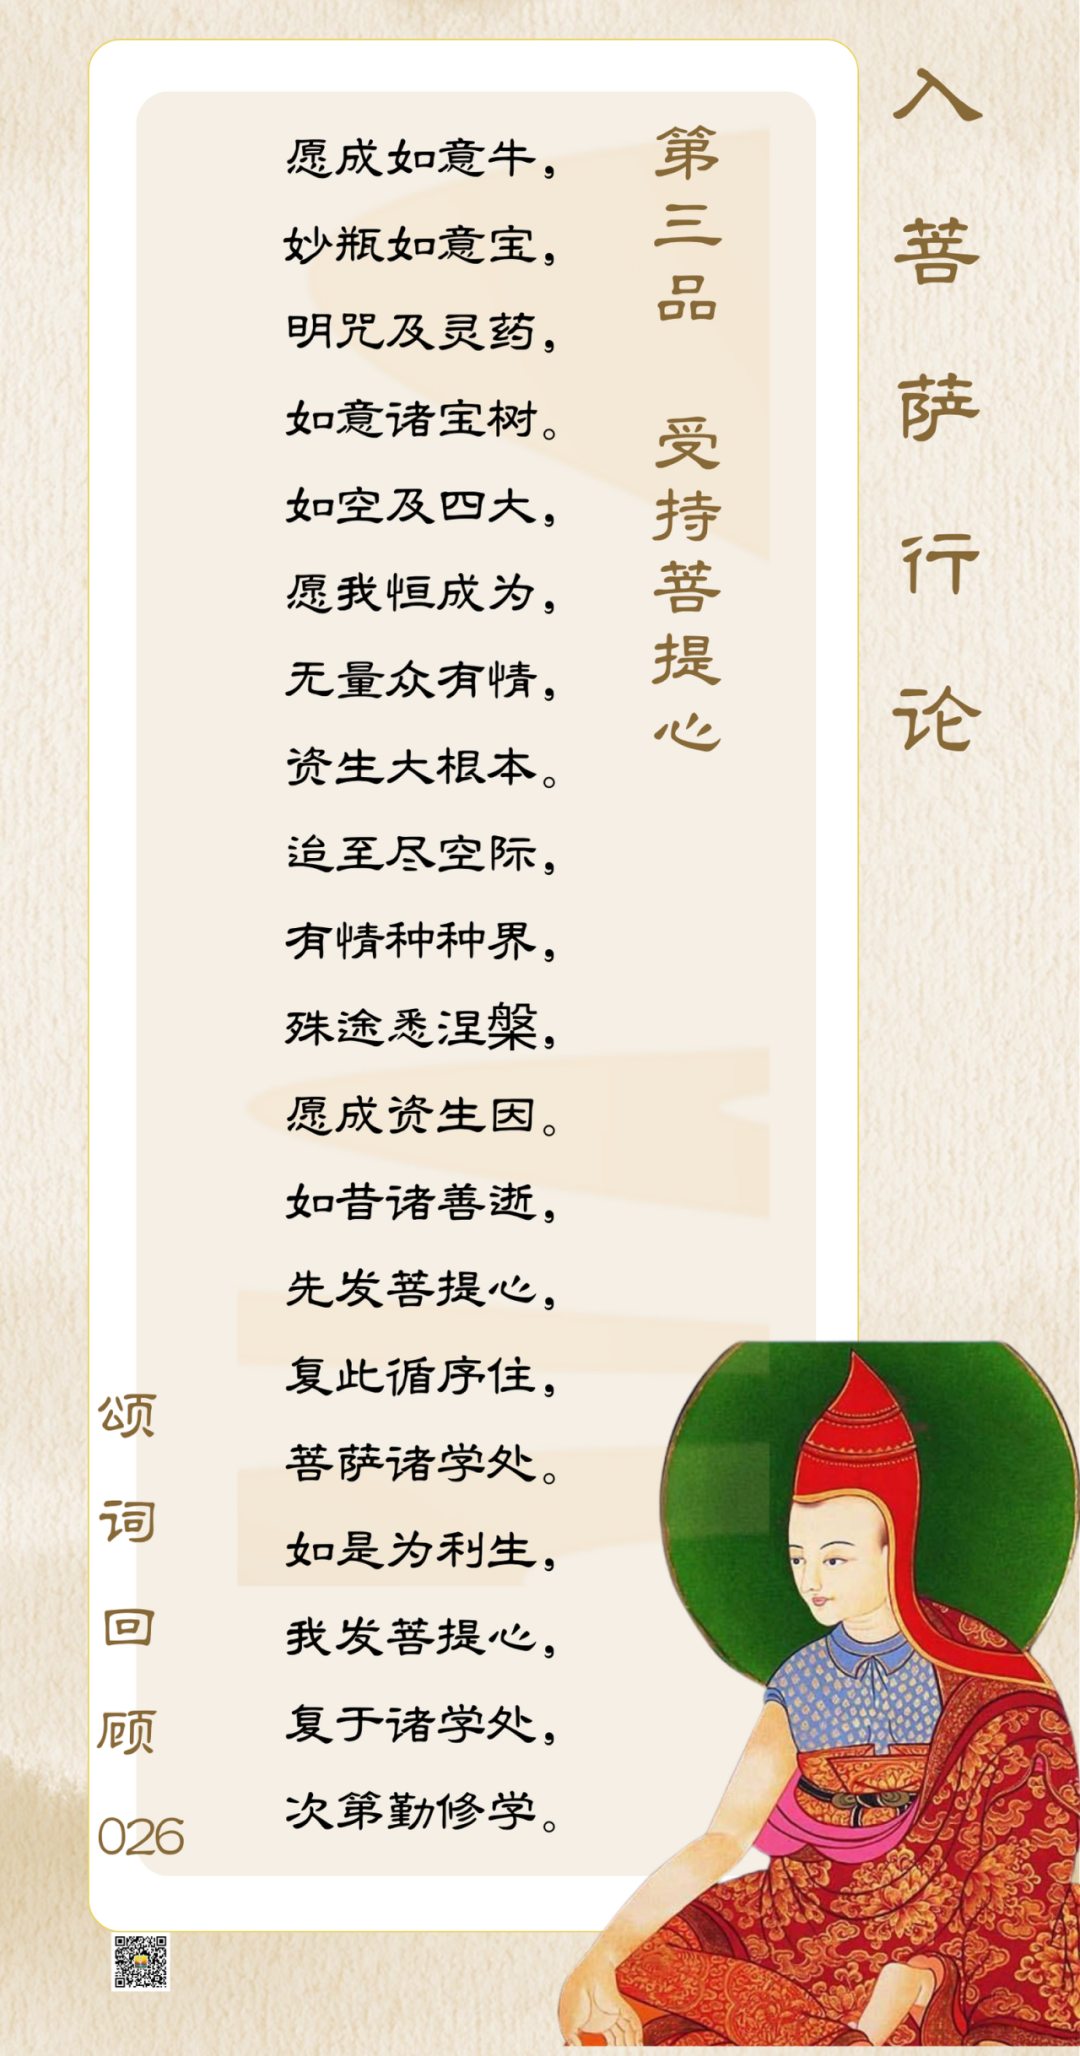 入菩萨行论
第三品 受持菩提心
愿成如意牛，
妙瓶如意宝，
明咒及灵药，
如意诸宝树。
如空及四大，
愿我恒成为，
无量众有情，
资生大根本。
迨至尽空际，
有情种种界，
殊途悉涅槃，
愿成资生因。
如昔诸善逝，
先发菩提心，
复此循序住，
菩萨诸学处。
如是为利生，
我发菩提心，
复于诸学处，
次第勤修学。
颂词回顾
026